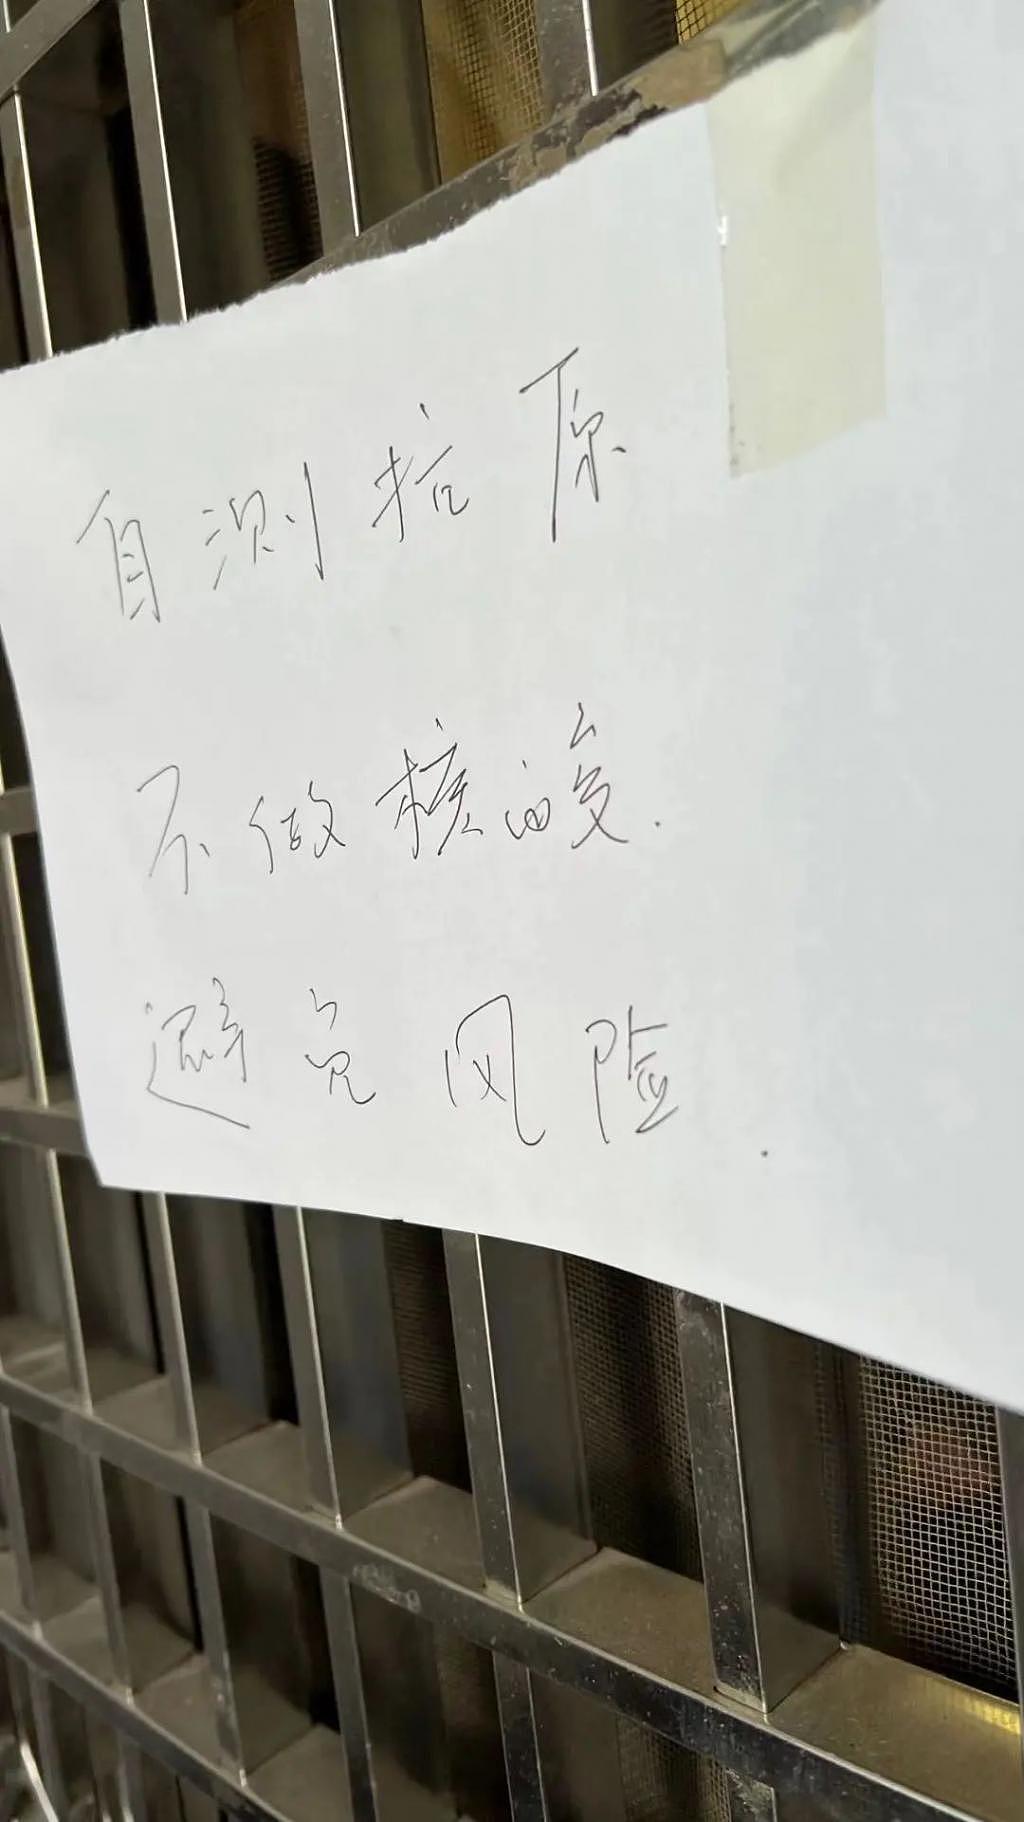 自测抗原
不做核酸.
避免风险.